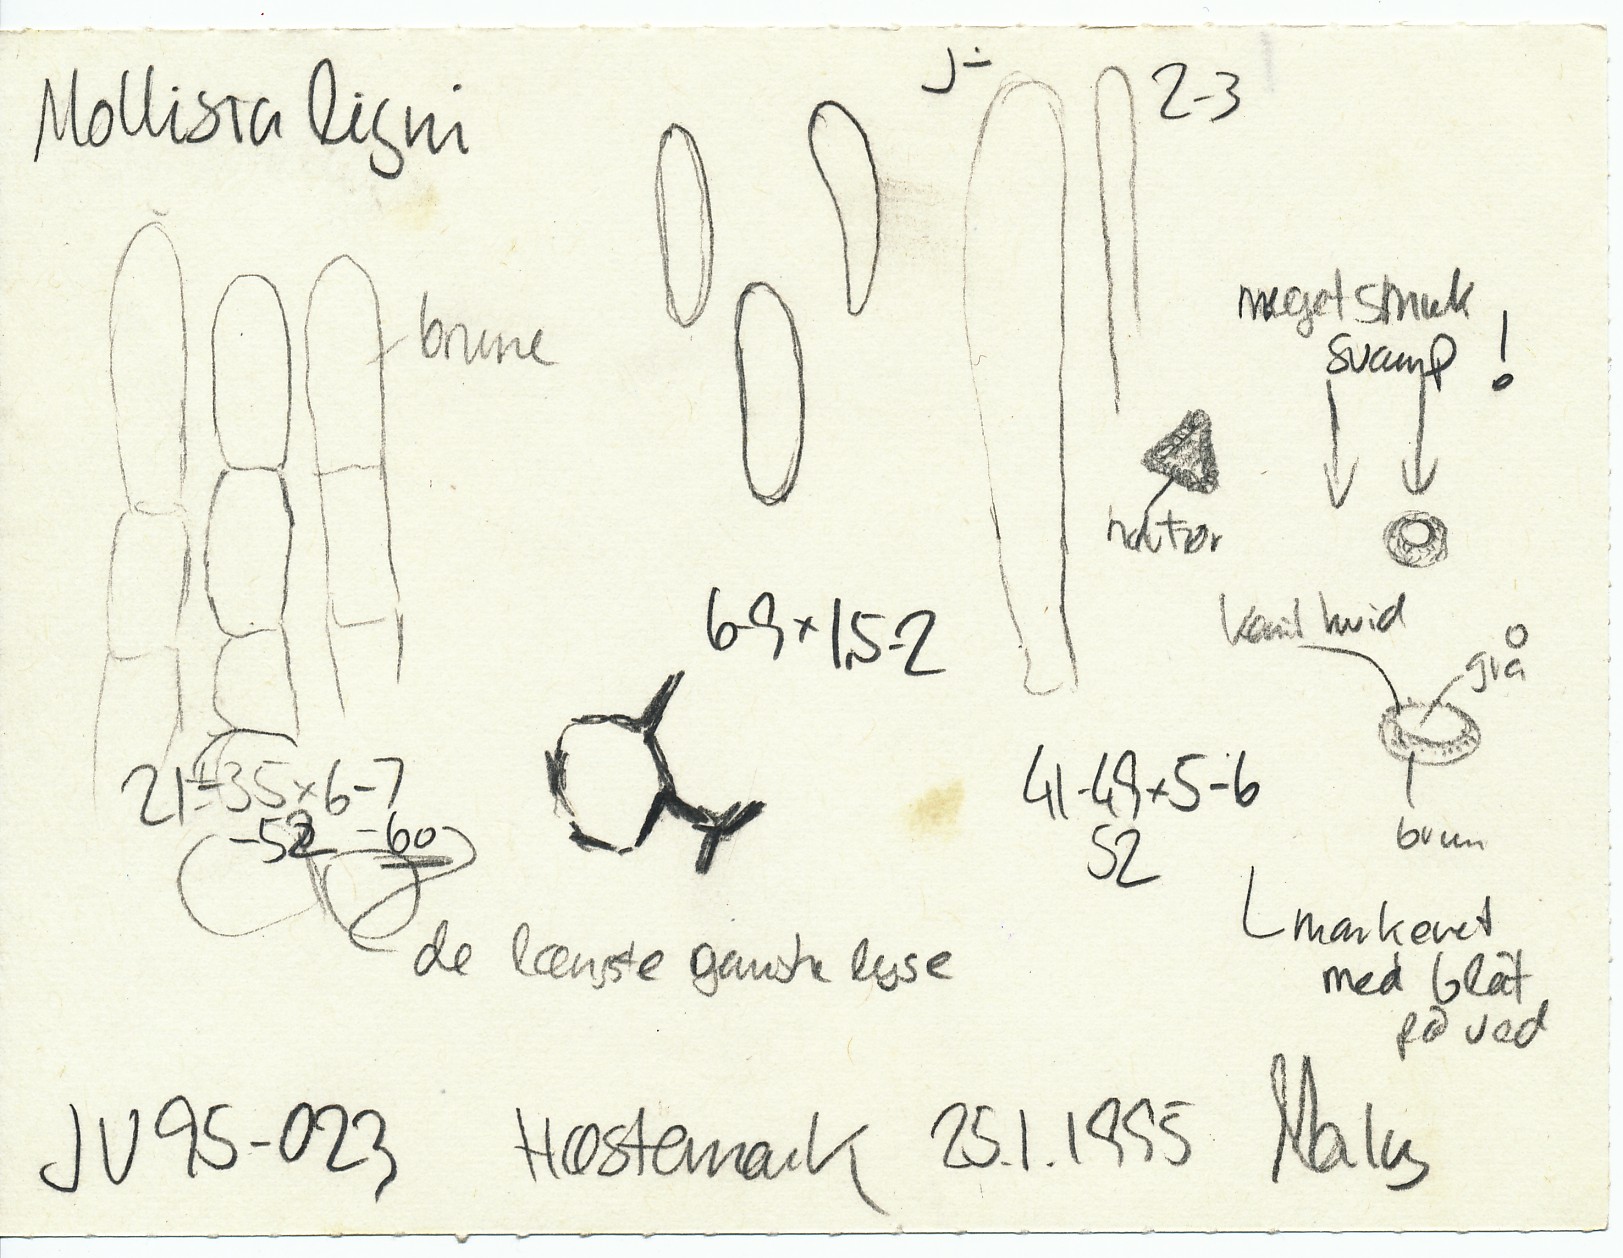 Mollisia ligni
J÷
2-3
brune
meget smuk
svamp!
natstør
6-9×1,5-2
kant hvid
grå
brun
21-35×6-7
-52 -60
41-49×5-6
52
de længste ganske lyse
markeret
med blåt
på ved
JV95-023 Høstemark 25.1.1995 Malus